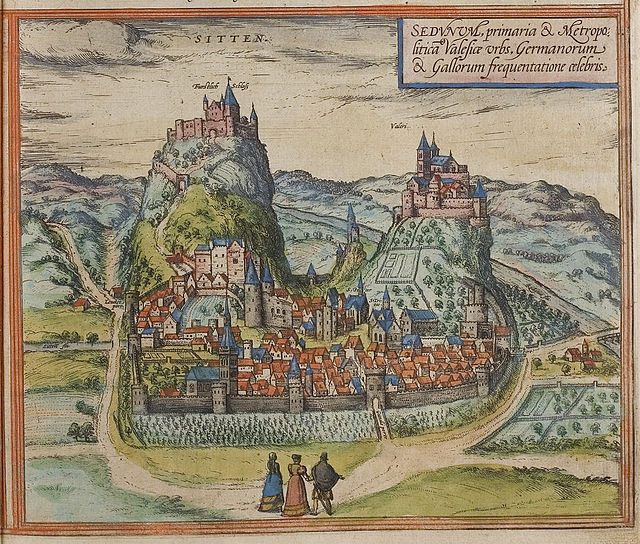 SITTEN.
SEDVNVM, primaria & Metropo
litica Valesiæ vrbs, Germanorum
& Gallorum frequentatione celebris.
Schloß
Valeri.